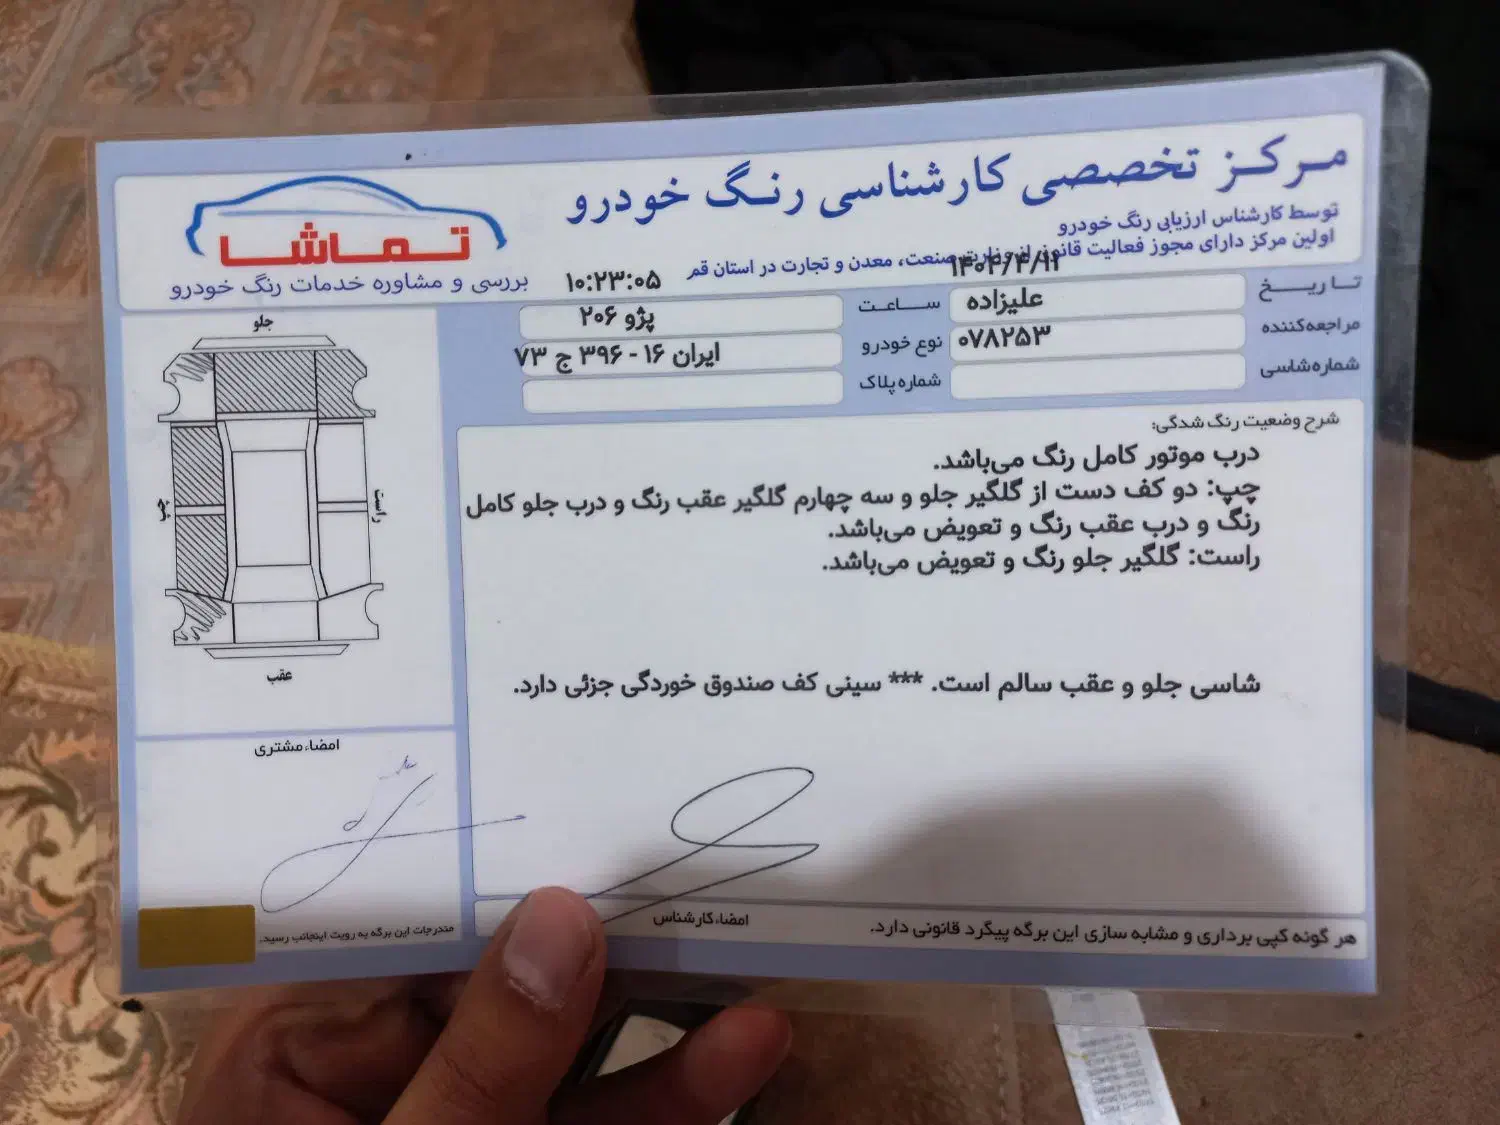 مرکز تخصصی کارشناسی رنگ خودرو
توسط کارشناس ارزیابی رنگ خودرو
اولین مرکز دارای مجوز فعالیت قانونی از وزارت صنعت، معدن و تجارت در استان قم
تماشا
بررسی و مشاوره خدمات رنگ خودرو
تاریخ
ساعت ۱۰:۲۳:۰۵
مراجعه‌کننده علیزاده
نوع خودرو پژو ۲۰۶
شماره شاسی ۰۷۸۲۵۳
شماره پلاک ایران ۱۶ - ۳۹۶ ج ۷۳
جلو
چپ
راست
عقب
شرح وضعیت رنگ شدگی:
درب موتور کامل رنگ می‌باشد.
چپ: دو کف دست از گلگیر جلو و سه چهارم گلگیر عقب رنگ و درب جلو کامل
رنگ و درب عقب رنگ و تعویض می‌باشد.
راست: گلگیر جلو رنگ و تعویض می‌باشد.
شاسی جلو و عقب سالم است. *** سینی کف صندوق خوردگی جزئی دارد.
امضاء مشتری
مندرجات این برگه به رویت اینجانب رسید.
امضاء کارشناس
هر گونه کپی برداری و مشابه سازی این برگه پیگرد قانونی دارد.